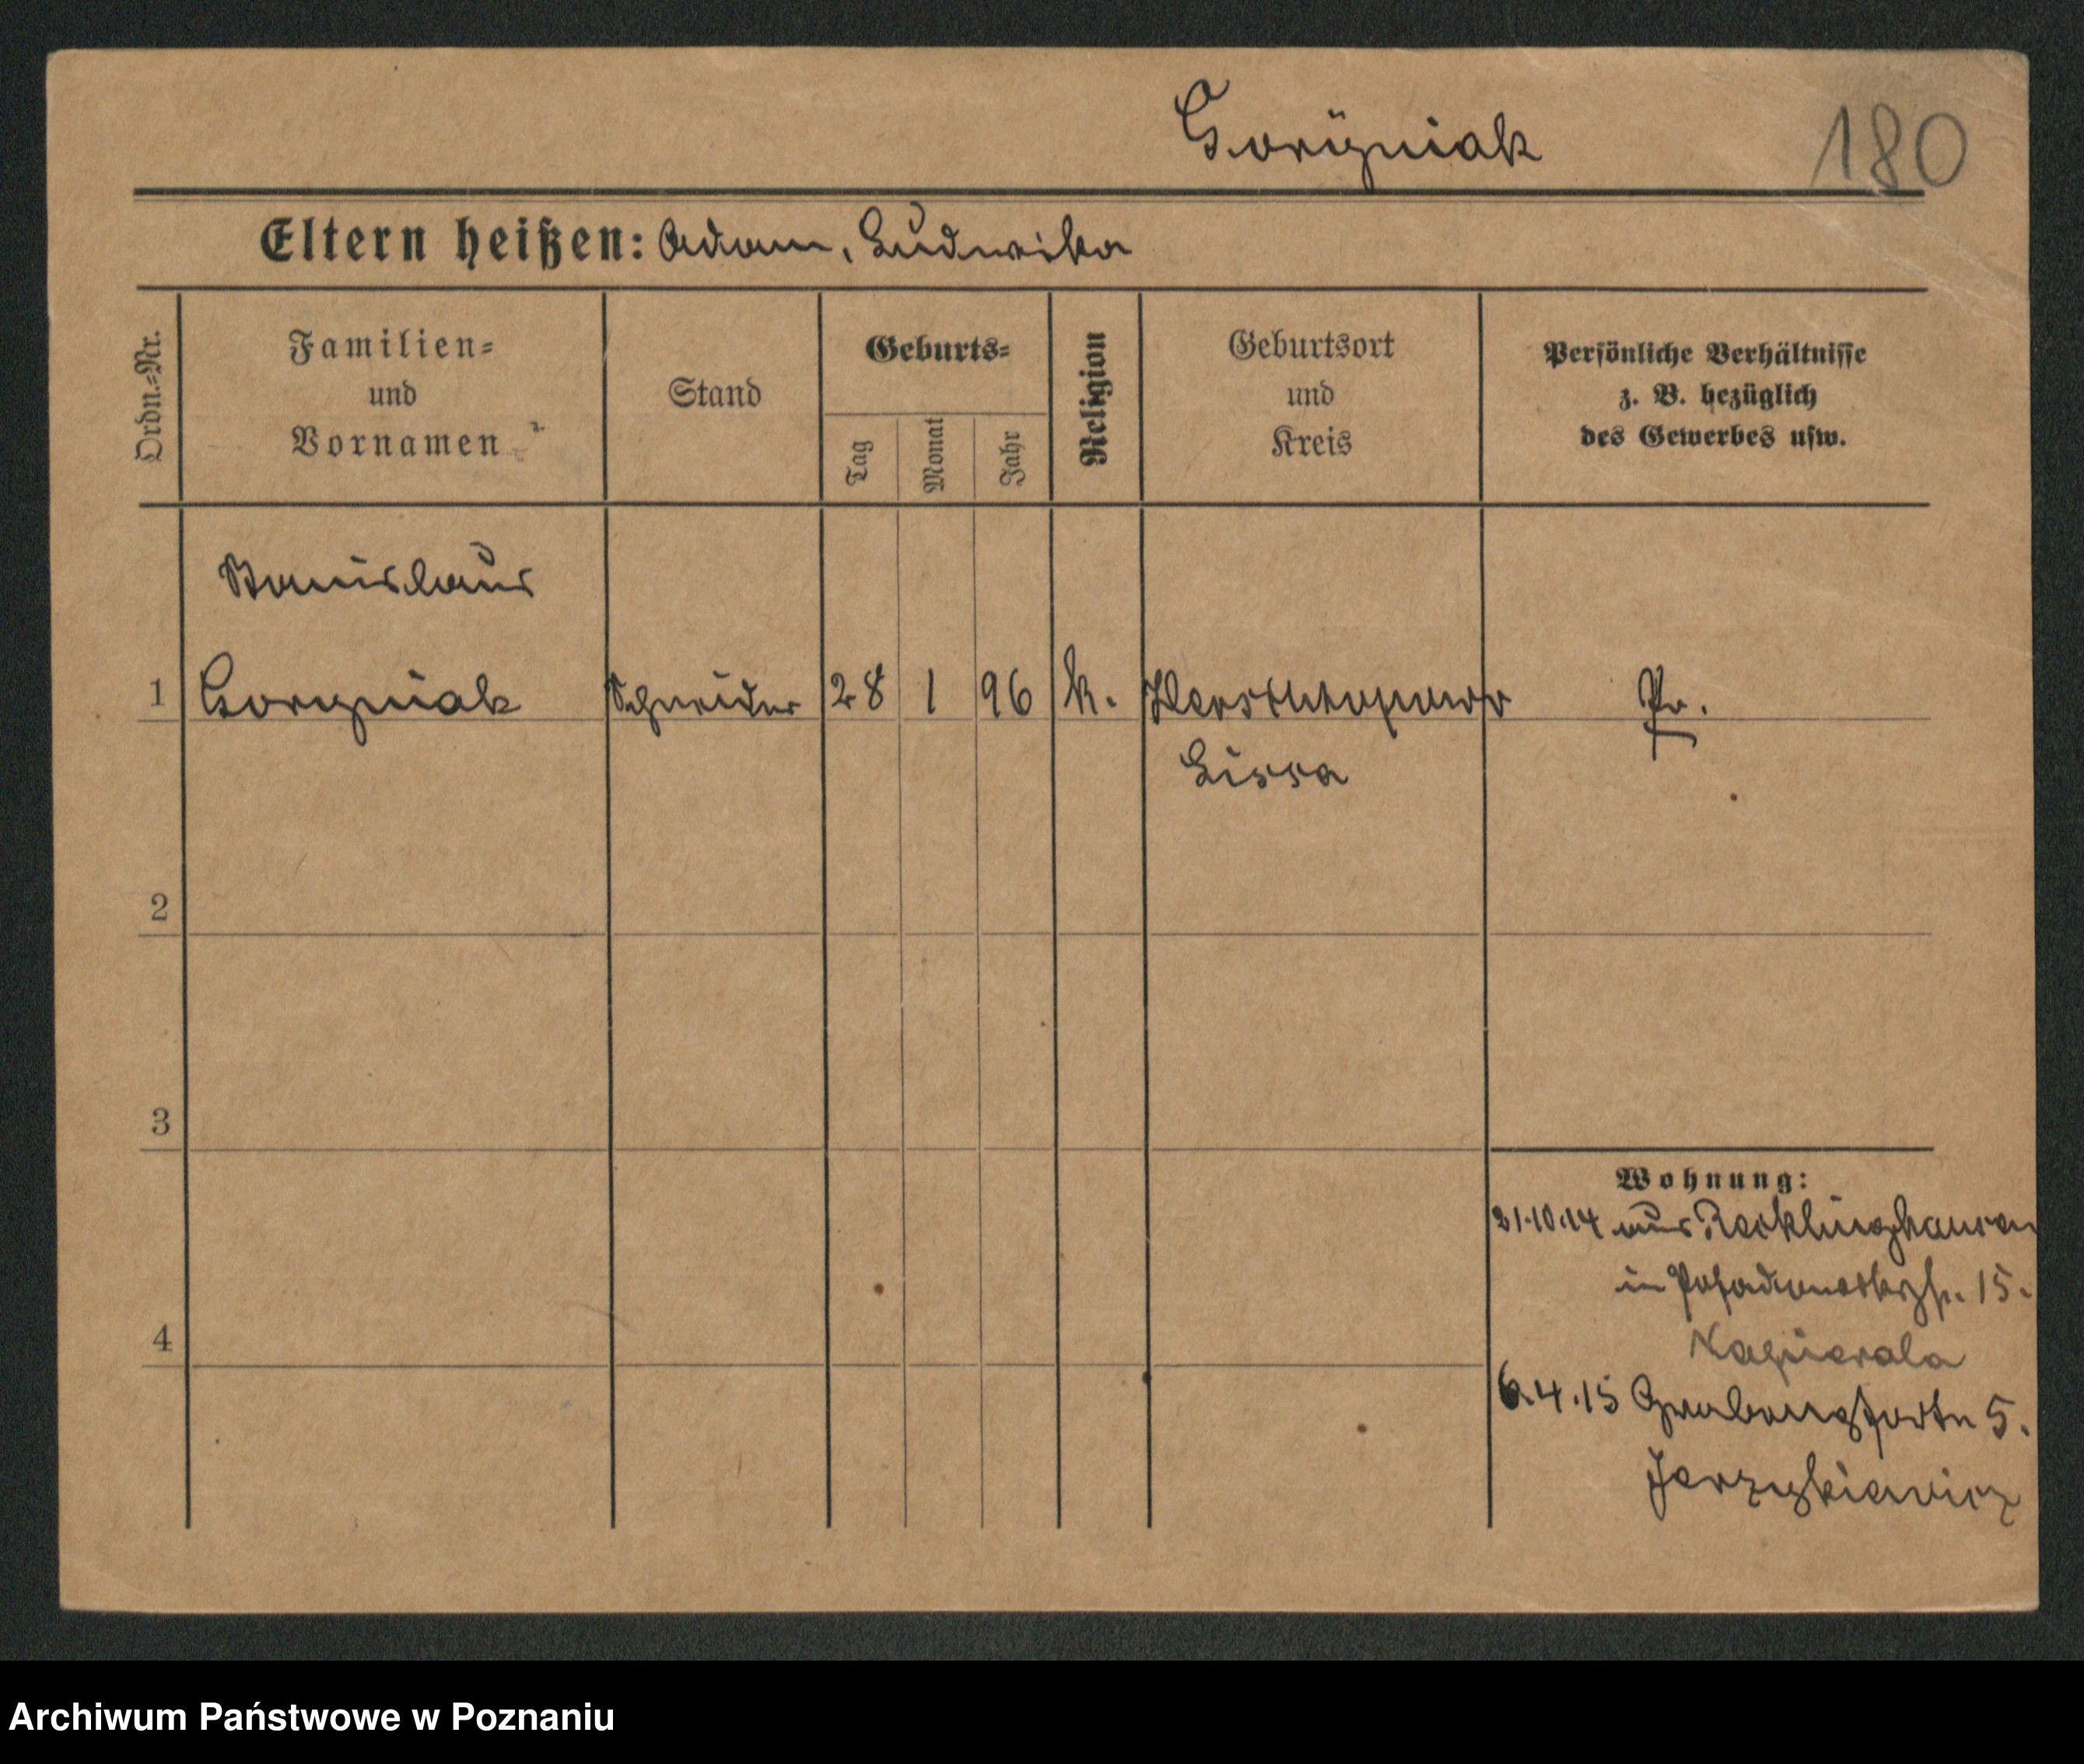 Goryniak
180
Eltern heißen: Adam, Ludwika
Ordn.-Nr.
Familien-
und
Vornamen
Stand
Geburts-
Tag
Monat
Jahr
Religion
Geburtsort
und
Kreis
Persönliche Verhältnisse
z. B. bezüglich
des Gewerbes usw.
Stanislaus
1 Goryniak Schneider 28 1 96 k. Pr.
Lissa
2
3
4
Wohnung:
21.10.14 aus Recklinghausen
in 15.
6.4.15 5.
Jerzykiewicz
Archiwum Państwowe w Poznaniu